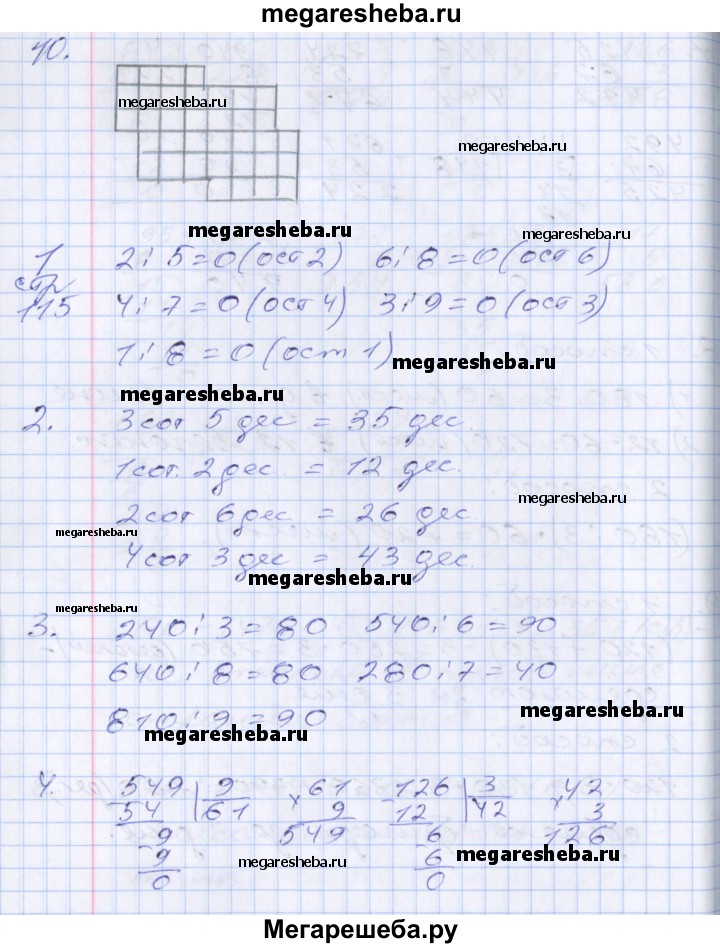 megaresheba.ru
10.
megaresheba.ru
megaresheba.ru
megaresheba.ru
1 2 : 5 = 0 (ост 2) 6 : 8 = 0 (ост 6)
стр 115 4 : 7 = 0 (ост 4) 3 : 9 = 0 (ост 3)
1 : 8 = 0 (ост 1)
megaresheba.ru
megaresheba.ru
2. 3 сот 5 дес = 35 дес.
1 сот. 2 дес. = 12 дес.
megaresheba.ru
2 сот 6 дес = 26 дес.
megaresheba.ru
4 сот 3 дес = 43 дес.
megaresheba.ru
megaresheba.ru
3. 240 : 3 = 80 540 : 6 = 90
640 : 8 = 80 280 : 7 = 40
megaresheba.ru
810 : 9 = 90
megaresheba.ru
4. - 549 | 9 × 61 - 126 | 3 × 42
54 61 9 12 42 3
- 9 549 - 6 126
9 6
megaresheba.ru
megaresheba.ru
0 0
Мегарешеба.ру